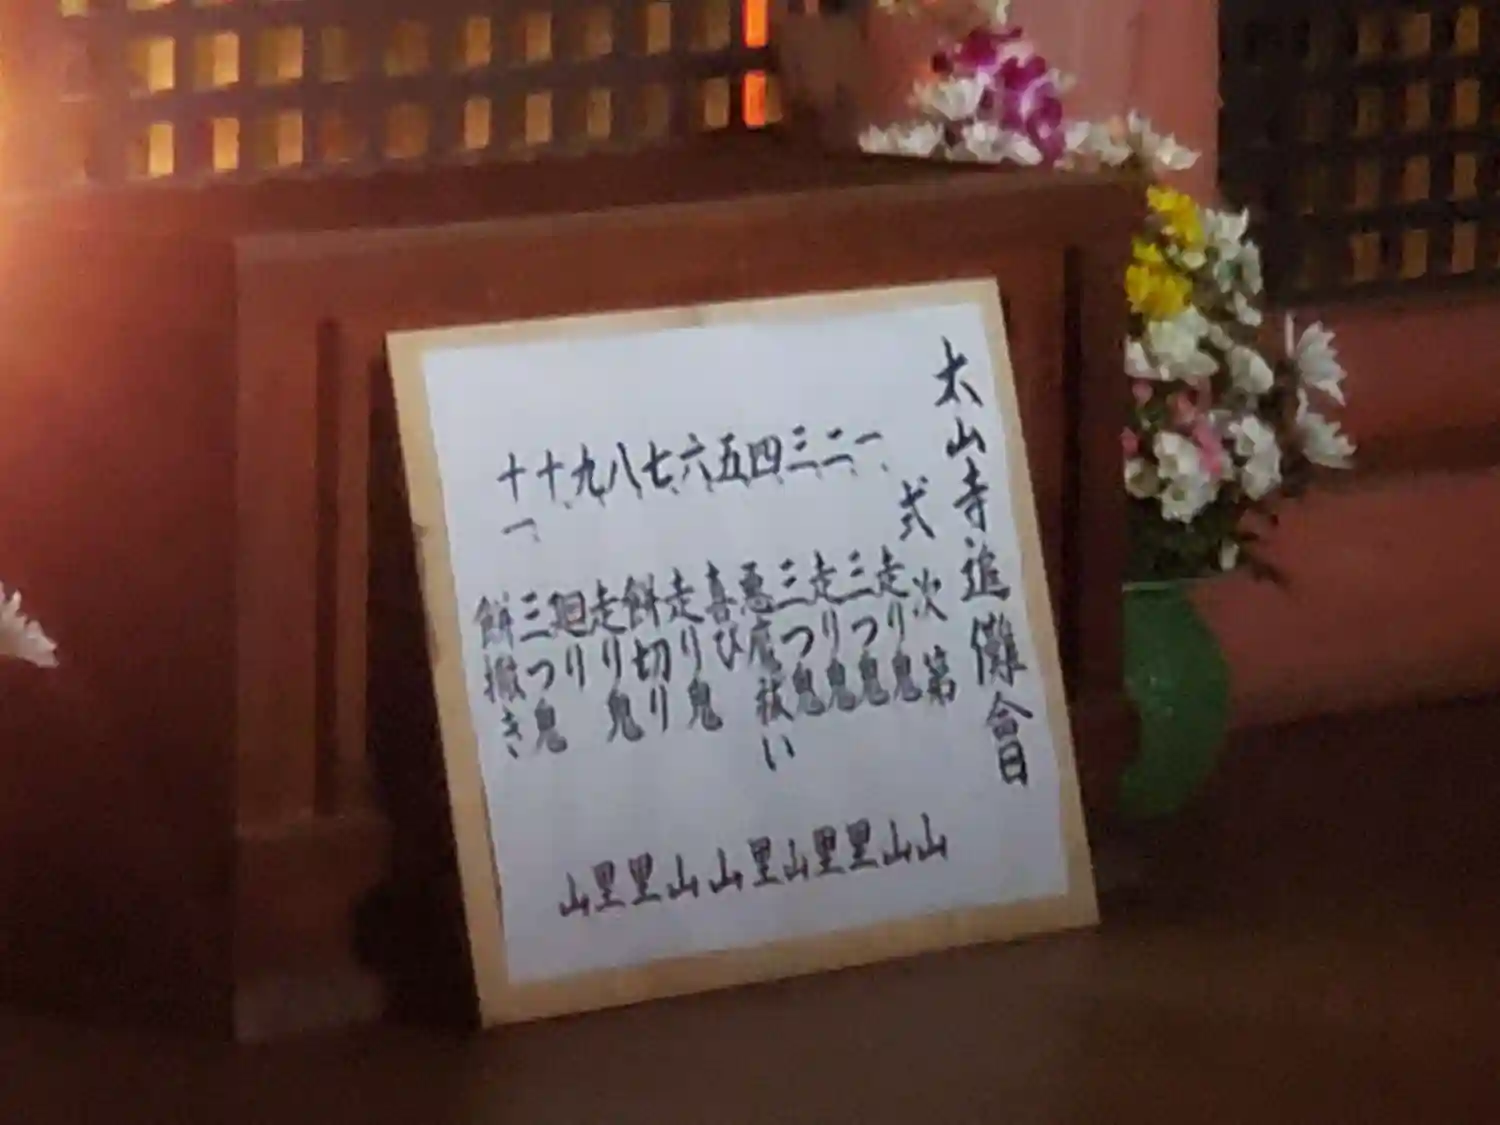 太山寺追儺會
式次第
一、走り鬼 山
二、三つ鬼 山
三、走り鬼 里
四、三つ鬼 里
五、悪魔祓い 山
六、喜び 里
七、走り鬼 山
八、餅切り 山
九、走り鬼 里
十、廻り 里
十一、三つ鬼 山
餅撒き